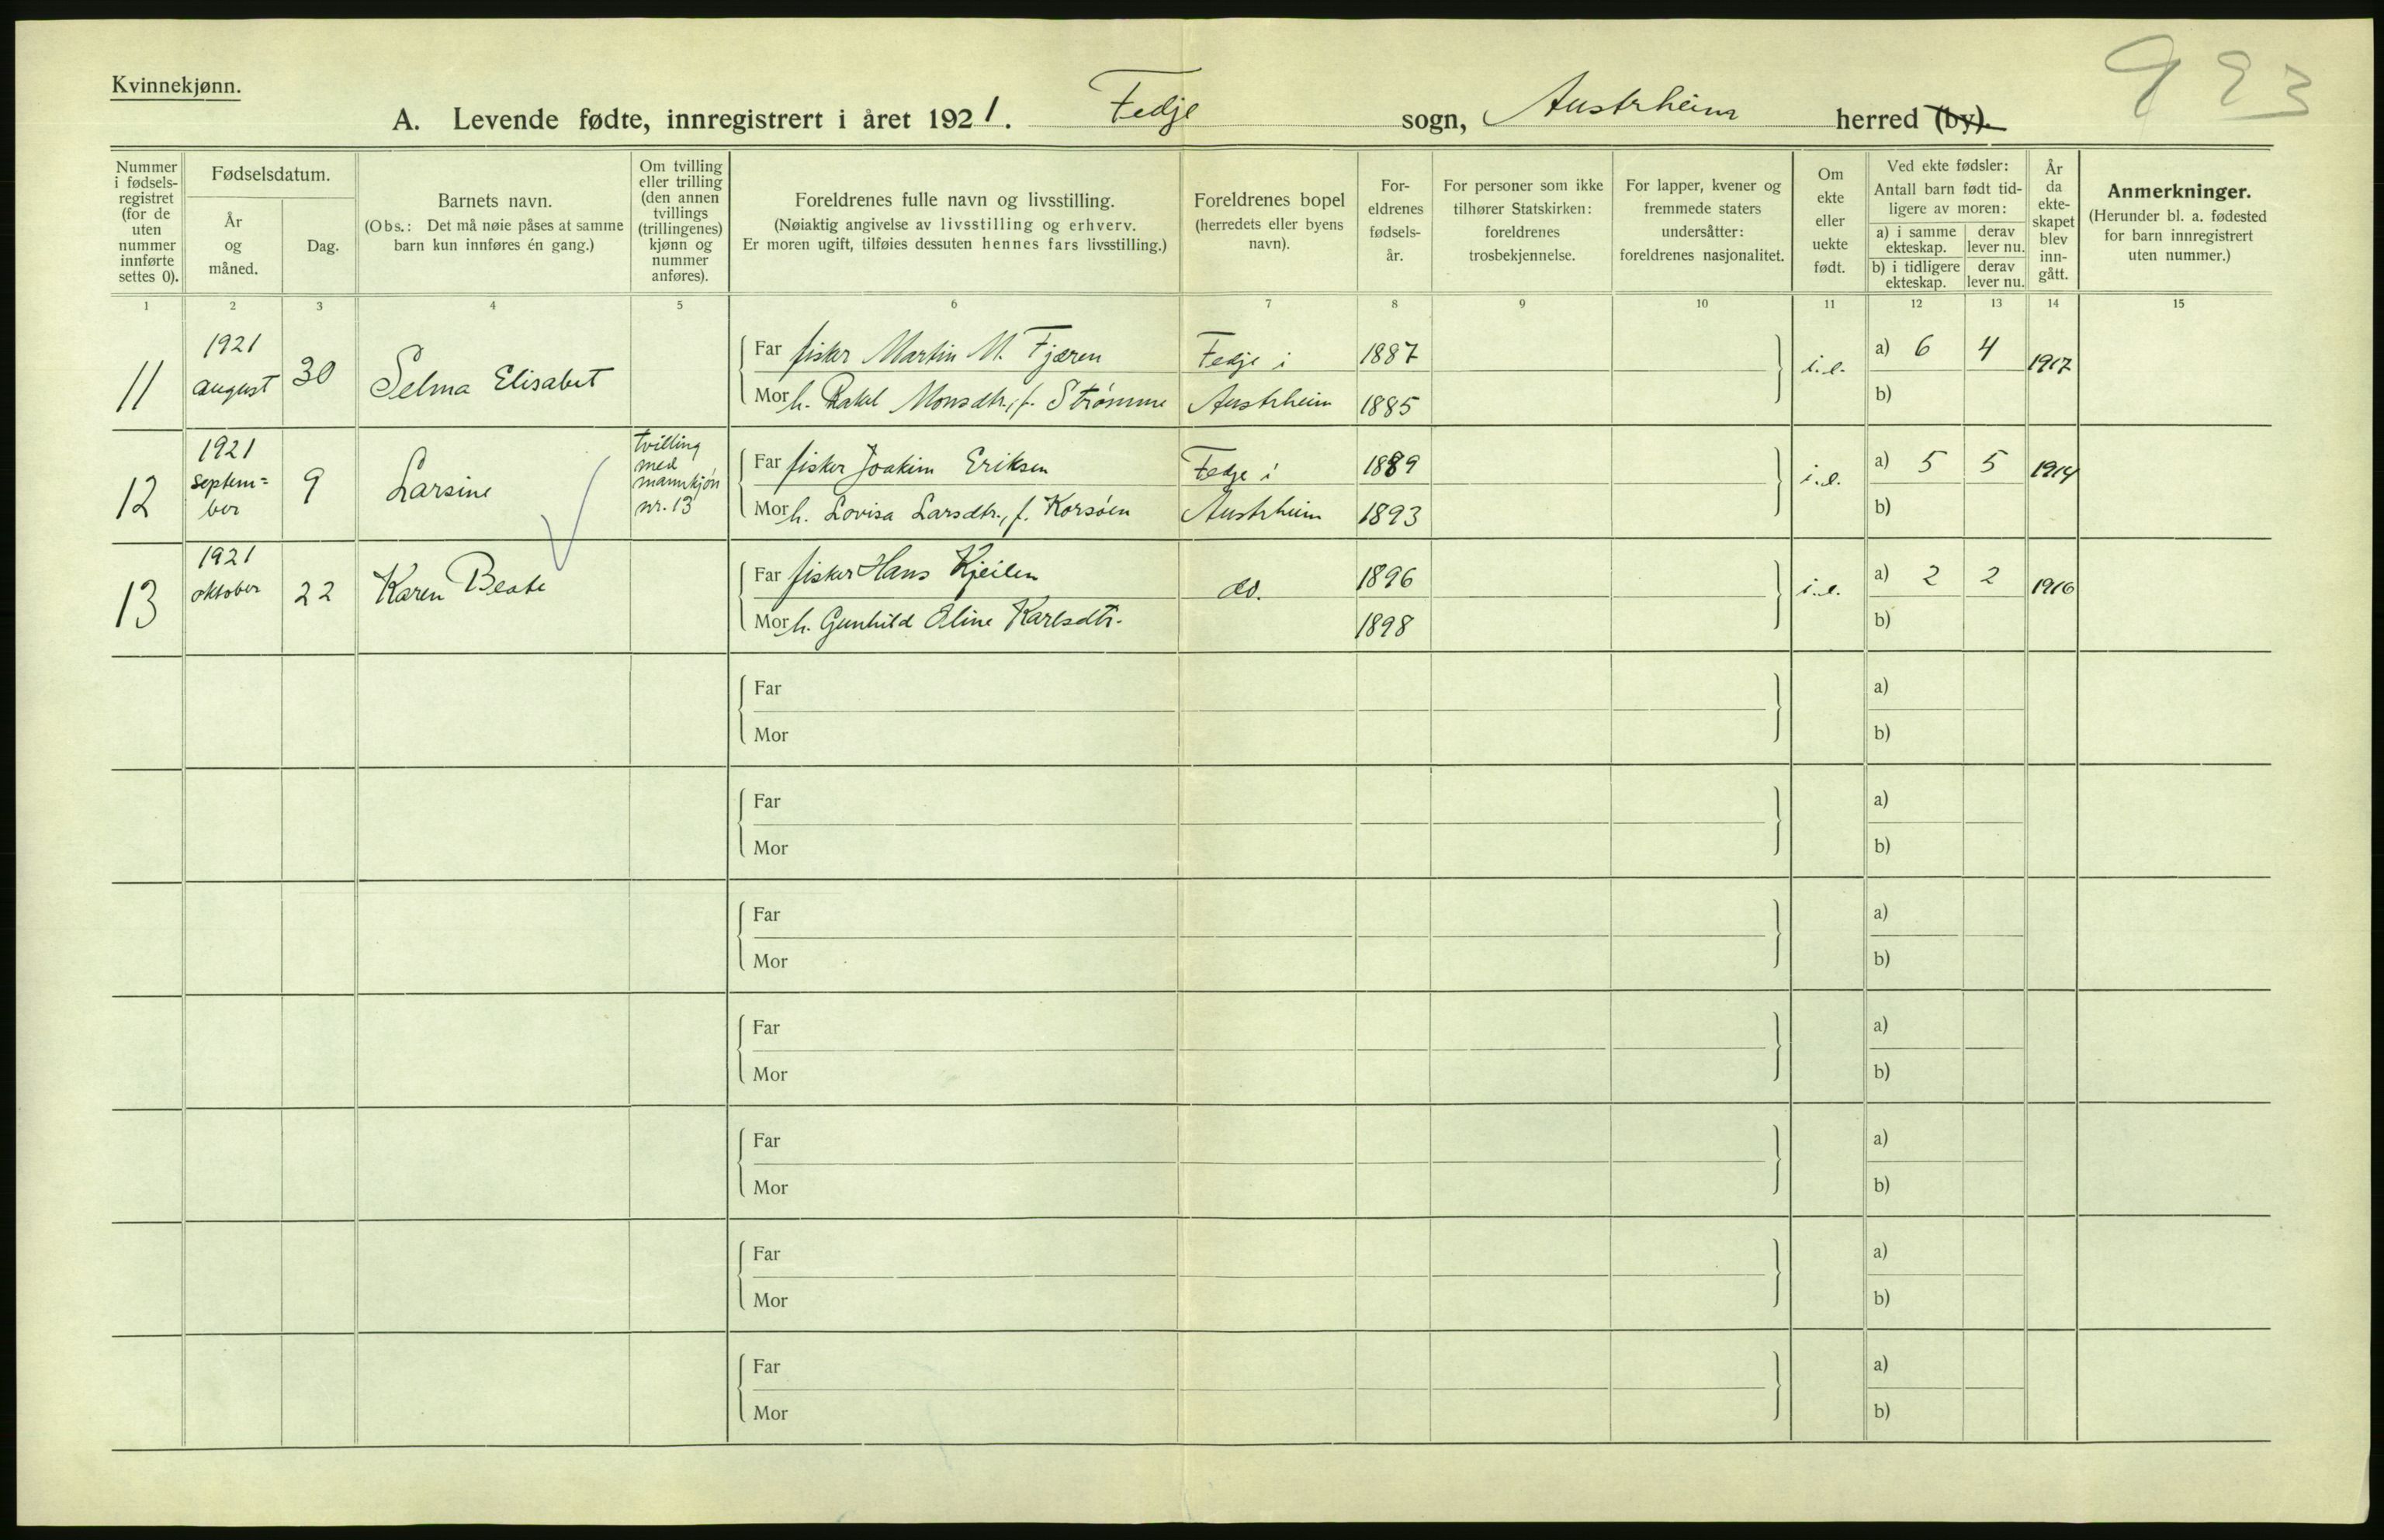 923
Kvinnekjønn.
A. Levende fødte, innregistrert i året 1921. Fedje sogn, Austrheim herred (by).
Nummer i fødsels-registret (for de uten nummer innførte settes 0).
Fødselsdatum.
År og måned.
Dag.
Barnets navn.
(Obs.: Det må nøie påses at samme barn kun innføres én gang.)
Om tvilling eller trilling (den annen tvillings (trillingenes) kjønn og nummer anføres).
Foreldrenes fulle navn og livsstilling.
(Nøiaktig angivelse av livsstilling og erhverv.
Er moren ugift, tilføies dessuten hennes fars livsstilling.)
Foreldrenes bopel
(herredets eller byens navn).
For-eldrenes fødsels-år.
For personer som ikke tilhører Statskirken: foreldrenes trosbekjennelse.
For lapper, kvener og fremmede staters undersåtter: foreldrenes nasjonalitet.
Om ekte eller uekte født.
Ved ekte fødsler:
Antall barn født tid-ligere av moren:
a) i samme ekteskap. derav lever nu.
b) i tidligere ekteskap. derav lever nu.
År da ekte-skapet blev inn-gått.
Anmerkninger.
(Herunder bl. a. fødested for barn innregistrert uten nummer.)
1 2 3 4 5 6 7 8 9 10 11 12 13 14 15
11 1921 august 30 Selma Elisabet
Far fisker Martin M. Fjæren Fedje i 1887 i.e. a) 6 4 1917
Mor h. Rakel Monsdtr., f. Strømme Austrheim 1885 b)
12 1921 septem=ber 9 Larsine tvilling med mannkjøn nr. 13
Far fisker Joakim Eriksen Fedje i 1889 i.e. a) 5 5 1914
Mor h. Lovisa Larsdtr., f. Korsøen Austrheim 1893 b)
13 1921 oktober 22 Karen Beate
Far fisker Hans Kjeilen do. 1896 i.e. a) 2 2 1916
Mor h. Gunhild Oline Karlsdtr. 1898 b)
Far a)
Mor b)
Far a)
Mor b)
Far a)
Mor b)
Far a)
Mor b)
Far a)
Mor b)
Far a)
Mor b)
Far a)
Mor b)